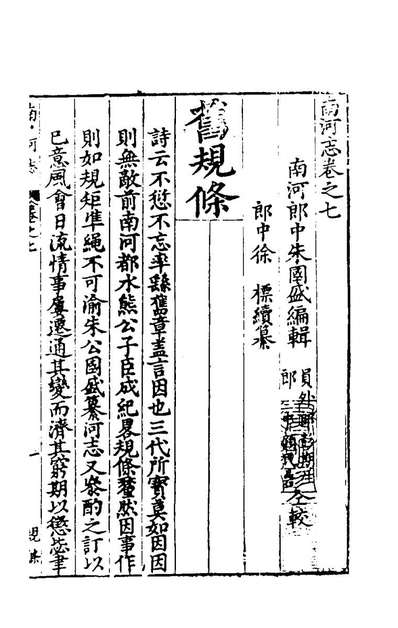 南河志卷之七
南河郎中朱國盛編輯
郎中徐 標續纂
員外郎
郎
仝較
舊規條
詩云不愆不忘率繇舊章盖言因也三代所寶莫如因因
則無敵前南河都水熊公子臣成紀畧規條犂然因事作
則如規矩凖繩不可渝朱公國盛纂河志又叅酌之訂以
已意風會日流情事屢遷通其變而濟其窮期以懲毖聿
南河志
卷之七
一